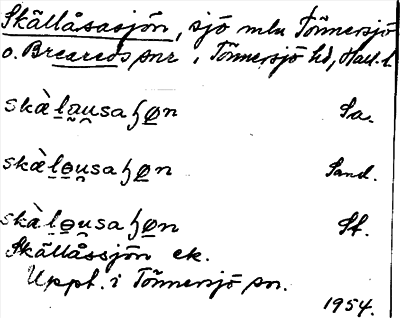 Skällåsasjön, sjö mln Tönnersjö
o. Breareds snr, Tönnersjö hd, Hall. l.
skàl̠a̠u̯saɧø̠n Sa.
skæ̀l̠ɵ̠u̯saɧø̠n Sand.
skàl̠ɵ̠u̯saɧø̠n St.
Skällåssjön ek.
Uppt. i Tönnersjö sn.
1954.